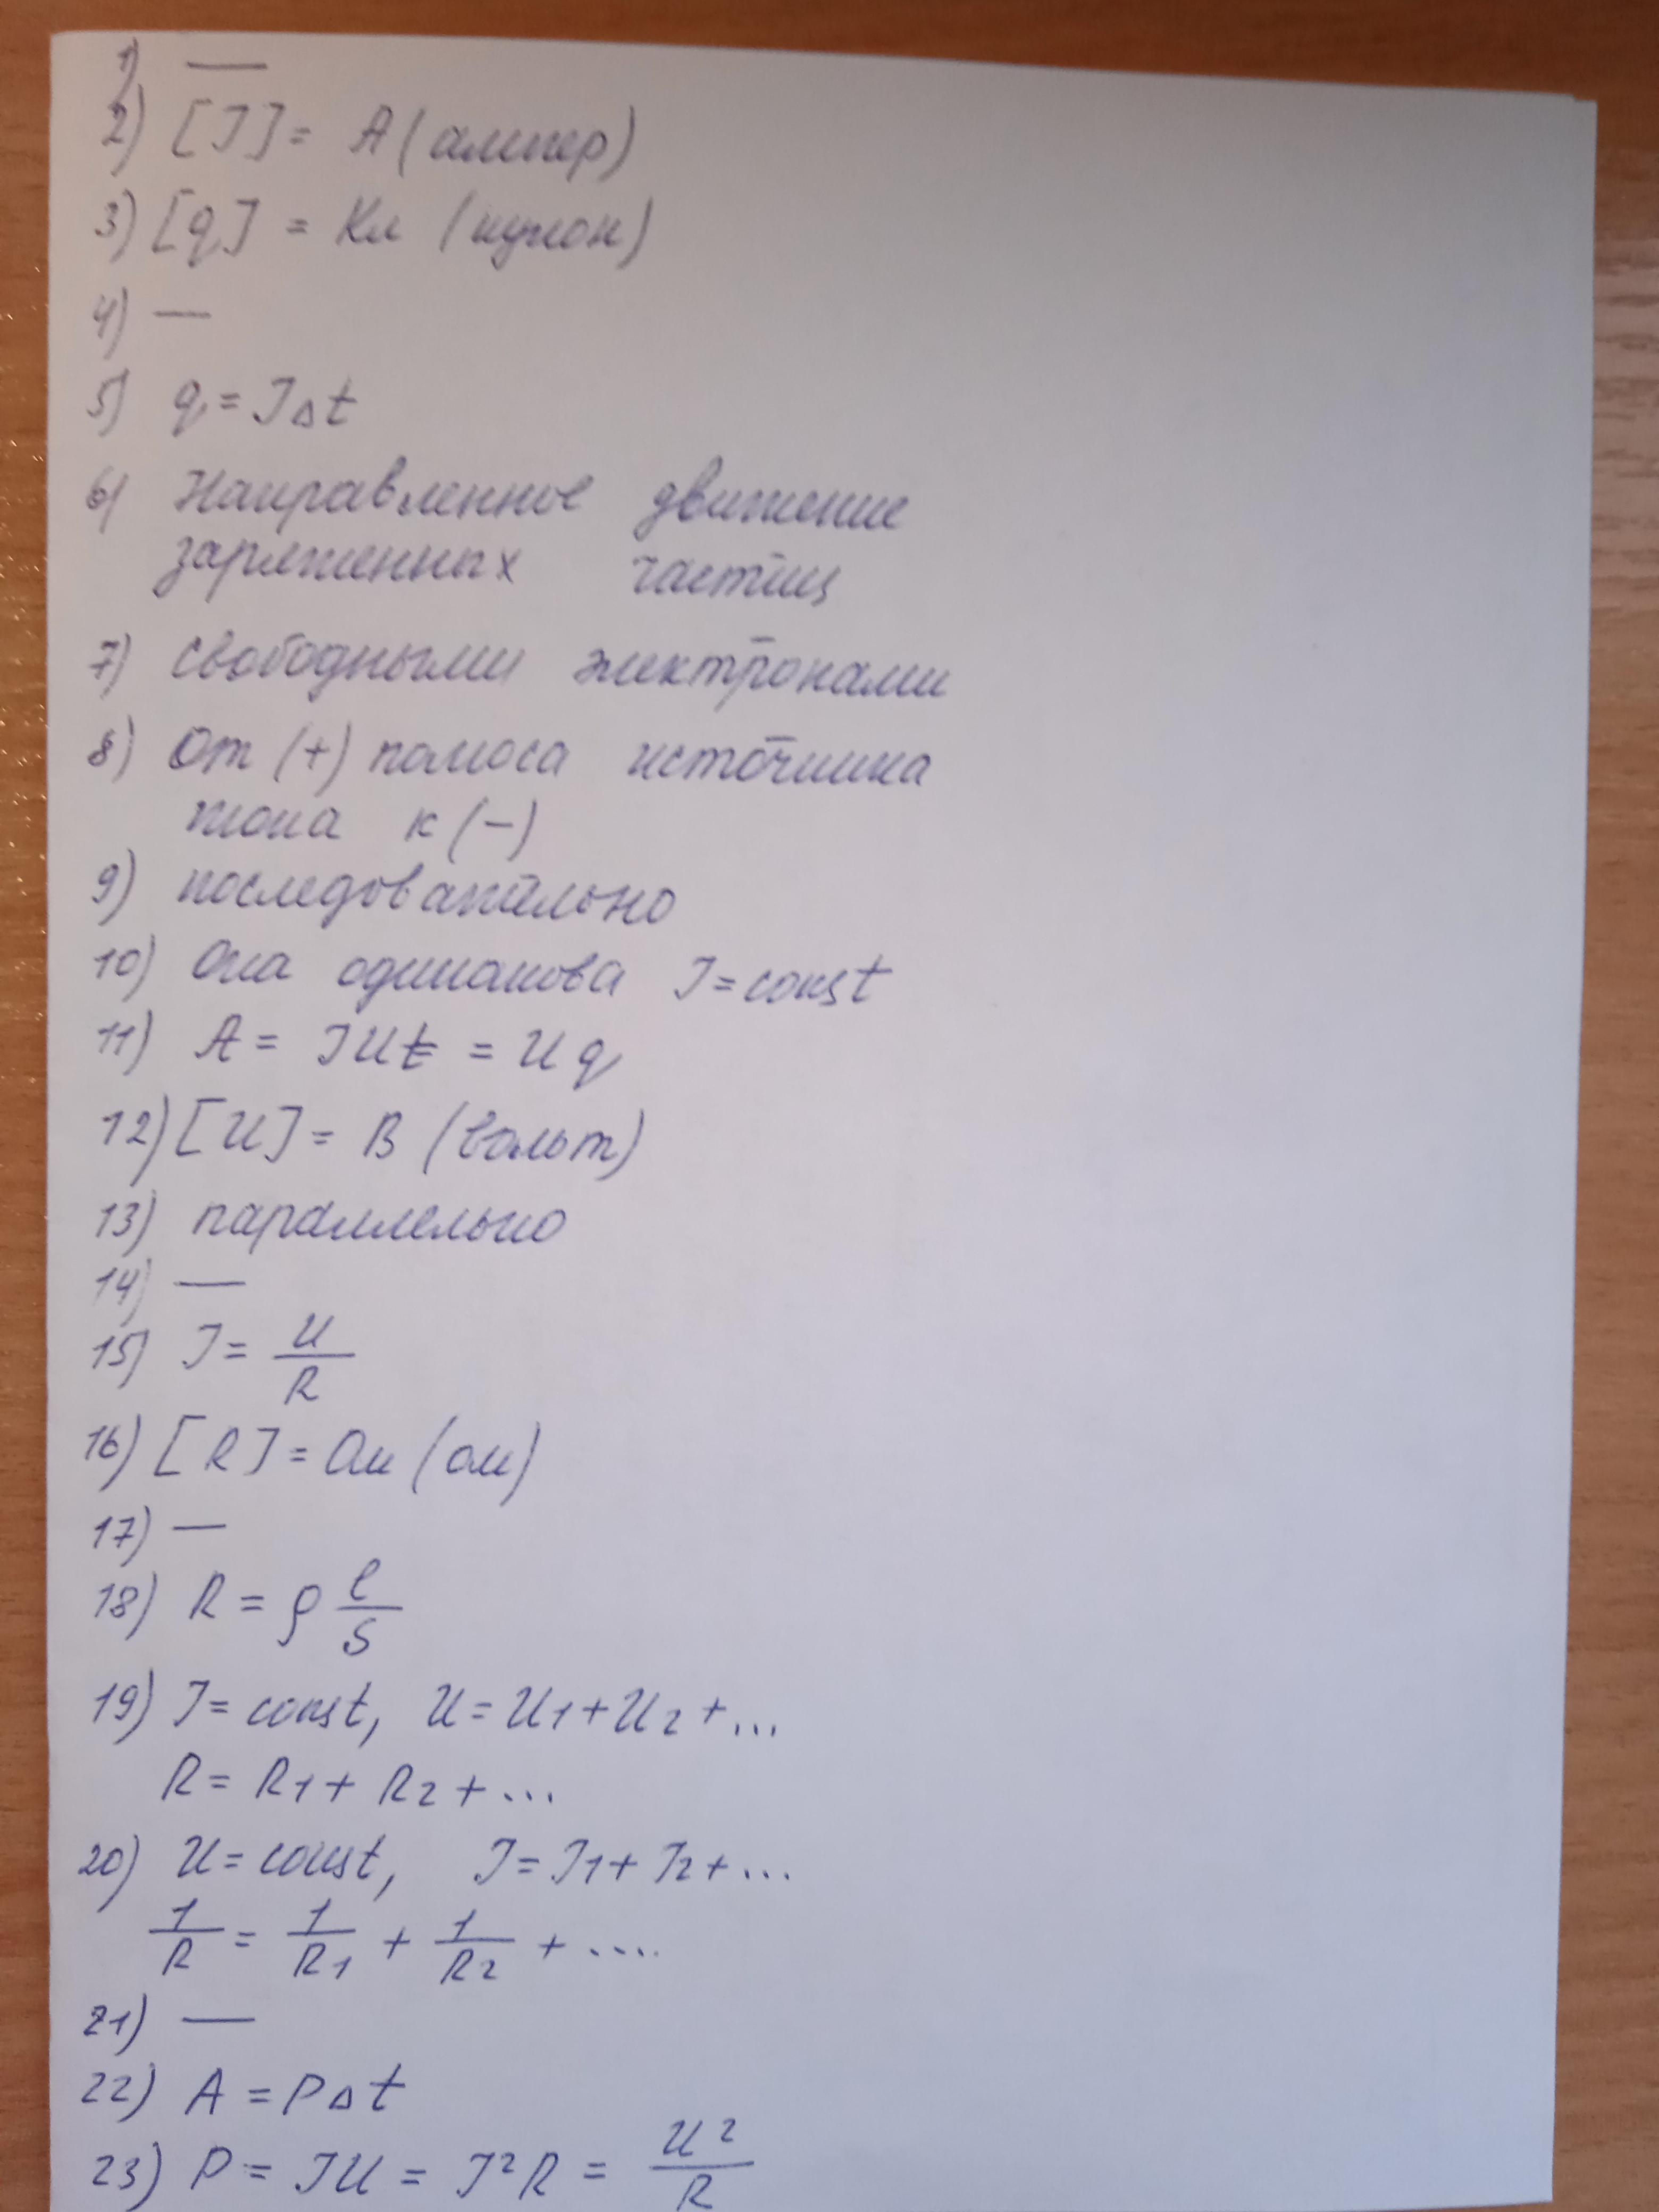 1) —
2) [I] = А (ампер)
3) [q] = Кл (кулон)
4) —
5) q = I∆t
6) Направленное движение
заряженных частиц
7) свободными электронами
8) От (+) полюса источника
тока к (-)
9) последовательно
10) Она одинакова I = const
11) A = IUt = Uq
12) [U] = В (вольт)
13) параллельно
14) —
15) I = U/R
16) [R] = Ом (ом)
17) —
18) R = ρ l/S
19) I = const, U = U1 + U2 + ...
R = R1 + R2 + ...
20) U = const, I = I1 + I2 + ...
1/R = 1/R1 + 1/R2 + ....
21) —
22) A = P∆t
23) P = IU = I²R = U²/R